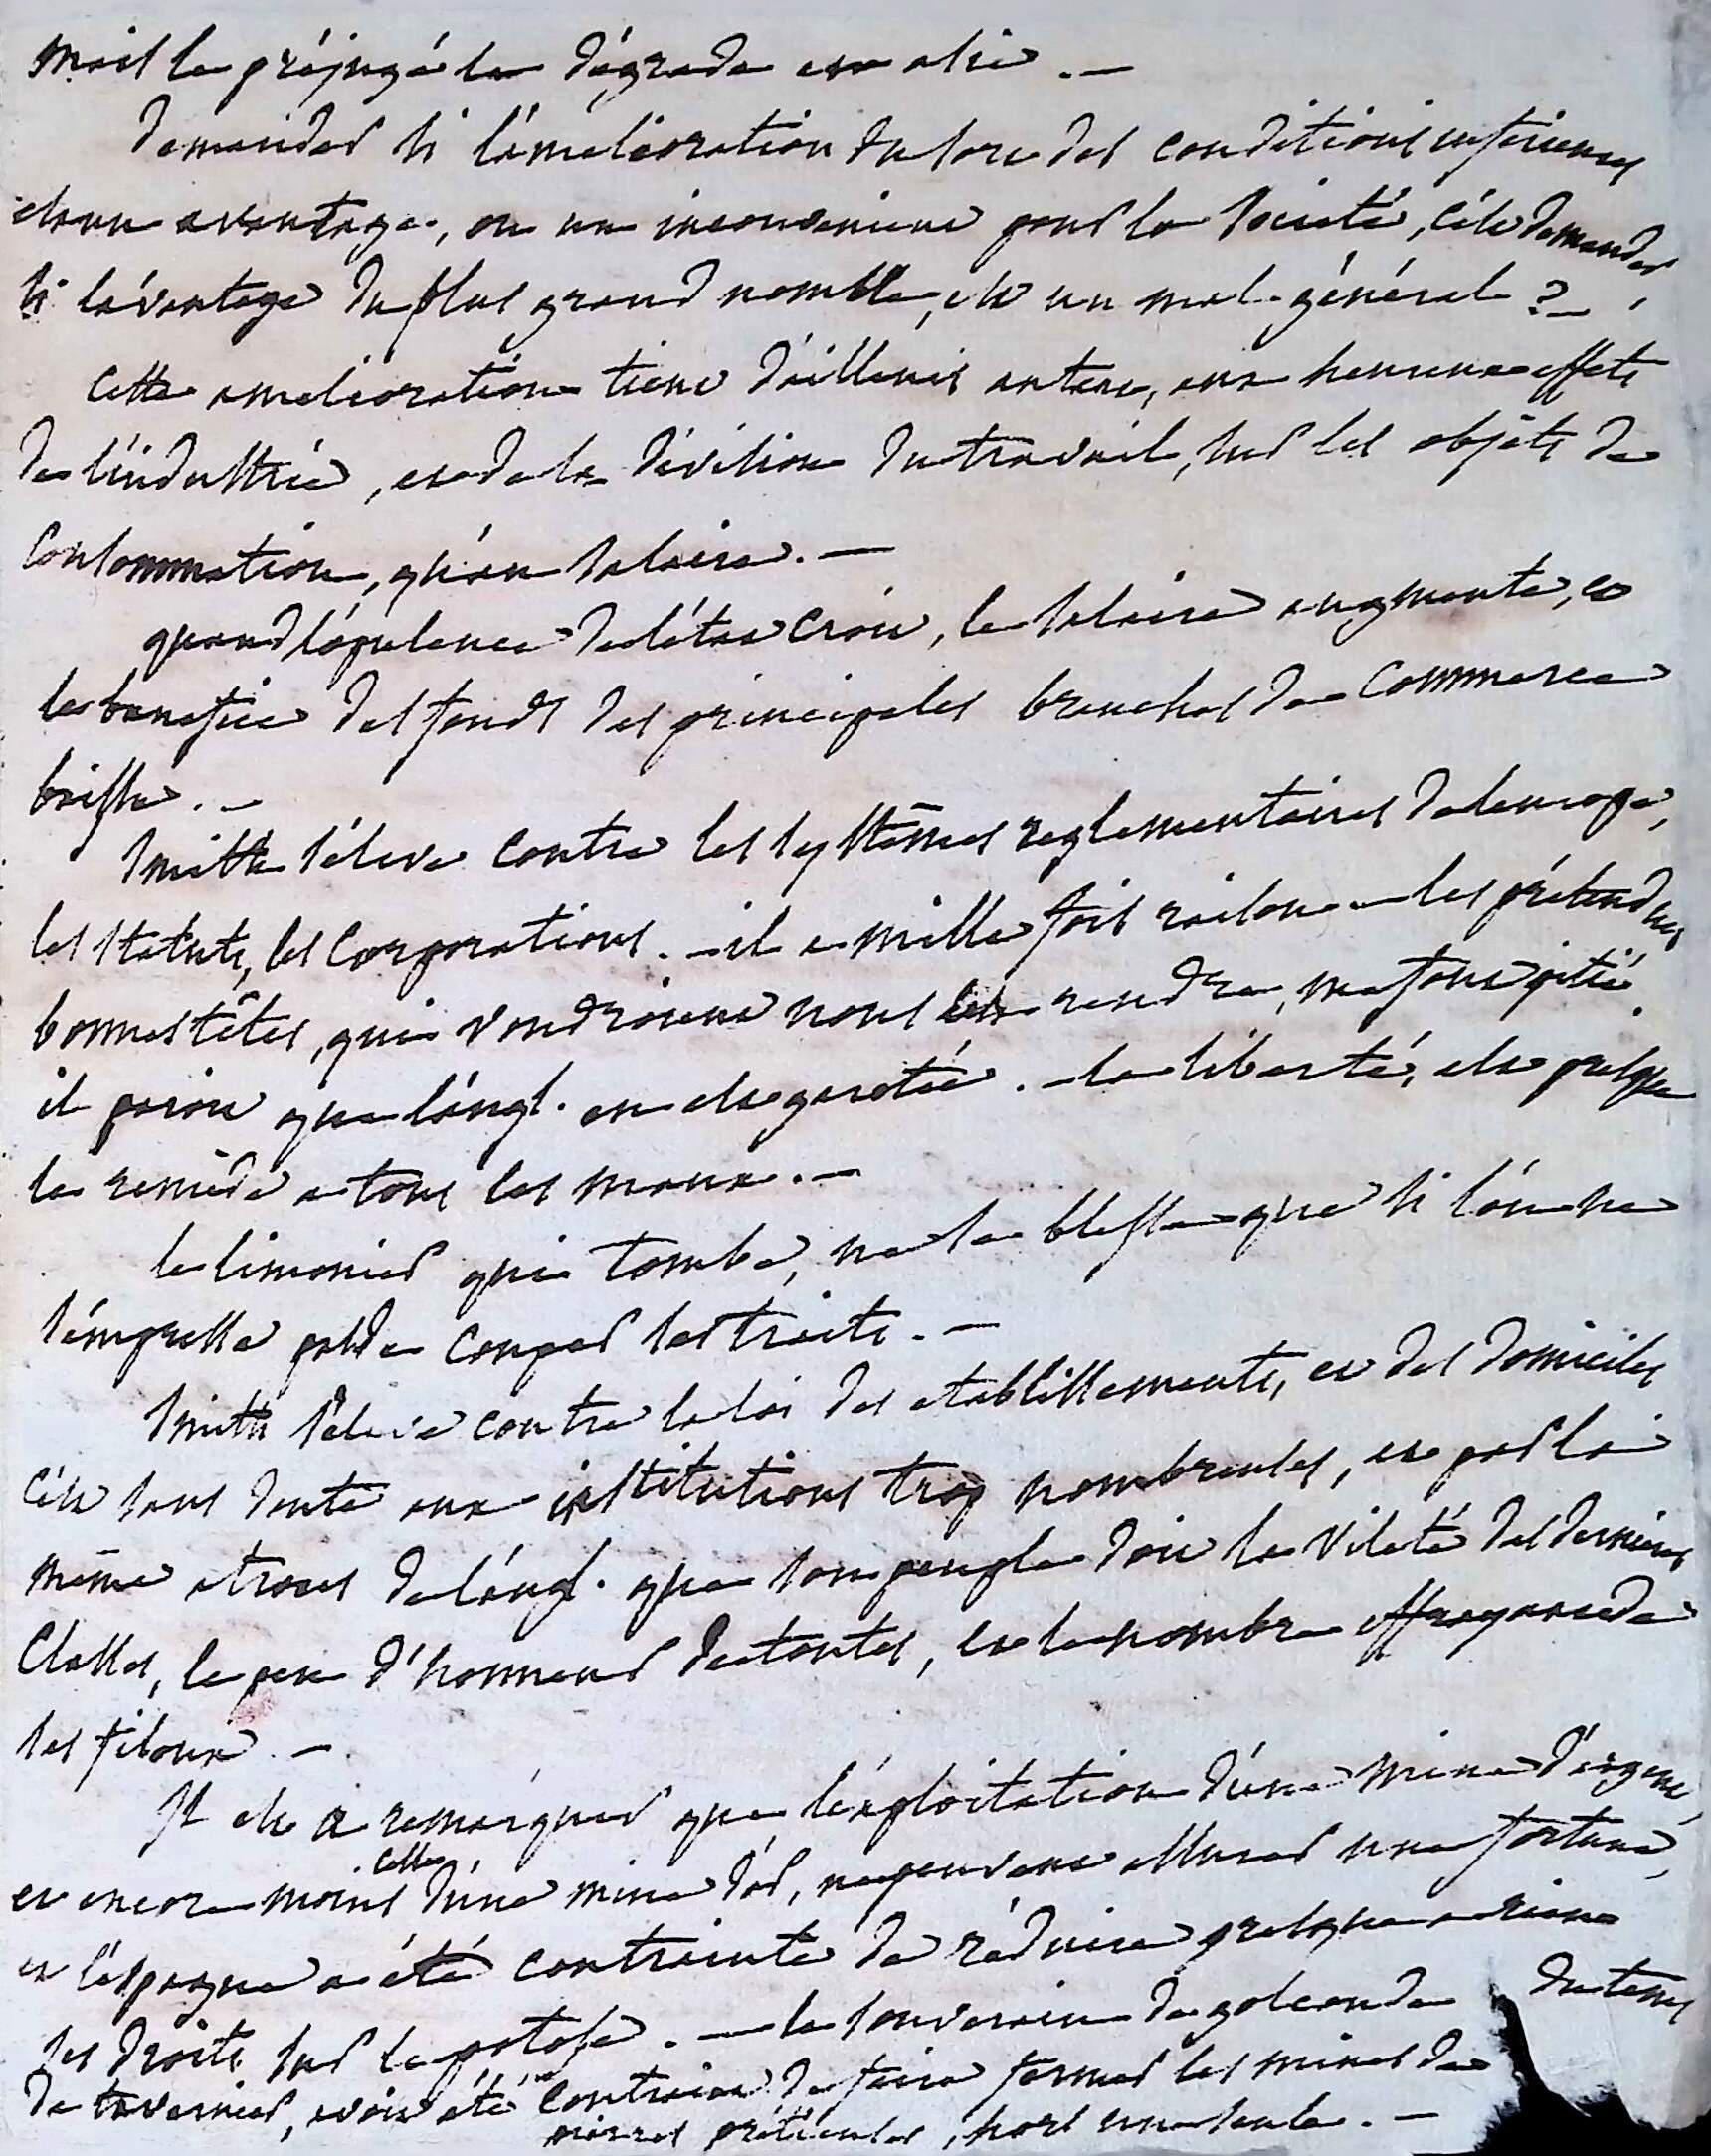 mais le préjugé la dégrade en asie. —
demander si l'amelioration du sort des conditions inferieures
est un avantage, ou un inconvenient pour la société, c'est demander
si l'avantage du plus grand nombre, est un mal général ? —
cette amelioration tient d'ailleurs autant, aux heureux effets
de l'industrie, et de la division du travail, sur les objets de
consommation, qu'au salaire. —
quand l'opulence de l'état croit, le salaire augmente, et
le benefice des fonds des principales branches de commerce
baisse. —
Smith s'éleve contre les systêmes reglementaires de l'europe,
les statuts, les corporations. — il a mille fois raison — les prétendues
bonnes têtes, qui voudroient nous les rendre, me font pitié.
il paroit que l'angl. en est garotée. — la liberté, est presque
le remède a tous les maux. —
le limonier qui tombe, ne se blesse que si l'on ne
s'empresse pas de couper les traits. —
Smith s'eleve contre la loi des etablissements, et des domiciles
c'est sans doute aux institutions trop nombreuses, et par là
même atroces de l'angl. que son peuple doit la vileté des dernieres
classes, le peu d'honneur de toutes, et le nombre effrayant de
ses filoux. —
Il est a remarquer que l'exploitation d'une mine d'argent,
et encore moins celle d'une mine d'or, ne peuvent assurer une fortune,
et l'espagne a été contrainte de réduire presque a rien
ses droits sur le potose. — le souverain de golconde du tems
de tavernier, avoit été contraint de faire fermer les mines de
pierres prétieuses, hors une seule. —